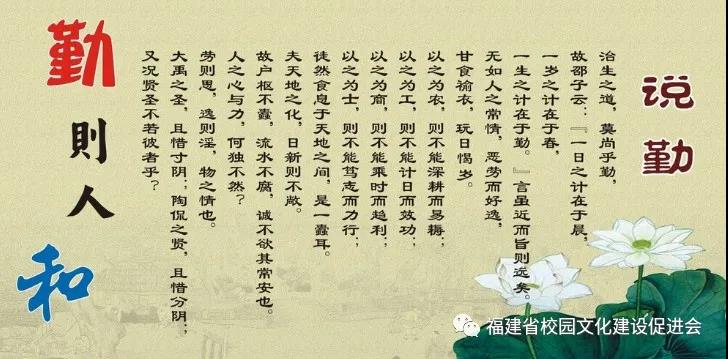 说勤
治生之道，莫尚乎勤，
故邵子云：『一日之计在于晨，
一岁之计在于春，
一生之计在于勤。』言虽近而旨则远矣。
无如人之常情，恶劳而好逸，
甘食褕衣，玩日愒岁。
以之为农，则不能深耕而易耨；
以之为工，则不能计日而效功；
以之为商，则不能乘时而趋利；
以之为士，则不能笃志而力行；
徒然食息于天地之间，是一蠹耳。
夫天地之化，日新则不敝。
故户枢不蠹，流水不腐，诚不欲其常安也。
人之心与力，何独不然？
劳则思，逸则淫，物之情也。
大禹之圣，且惜寸阴；陶侃之贤，且惜分阴；
又况贤圣不若彼者乎？
勤則人和
福建省校园文化建设促进会